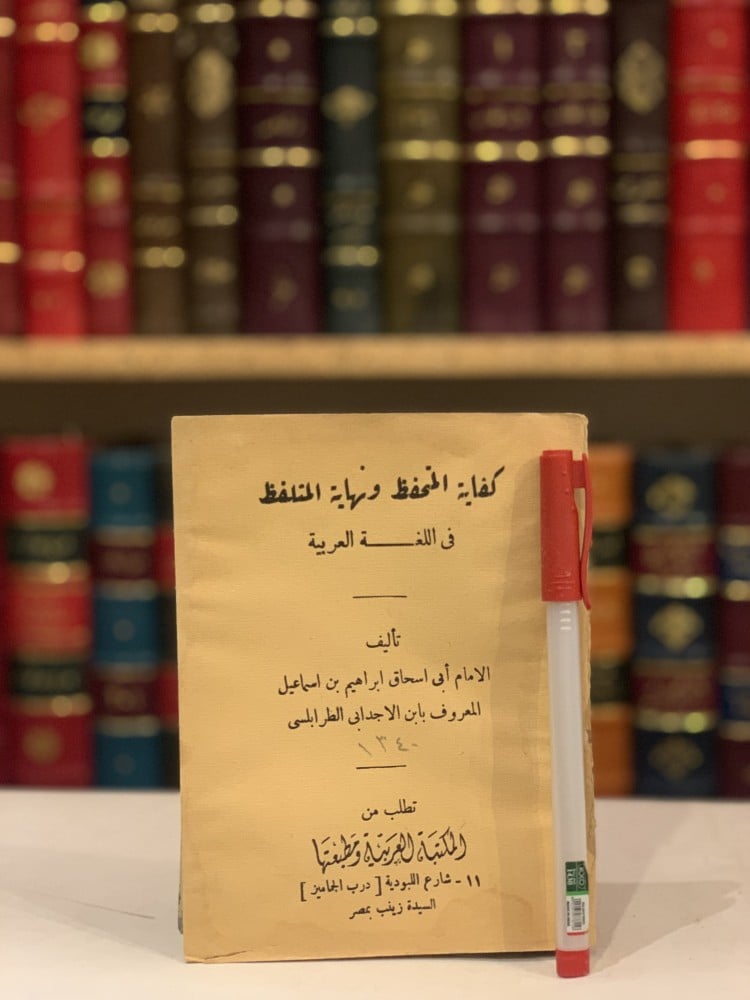 كفاية المتحفظ ونهاية المتلفظ
فى اللغـــــة العربية
تأليف
الامام أبى اسحاق ابراهيم بن اسماعيل
المعروف بابن الاجدابى الطرابلسى
١٣٤٠
تطلب من
المكتبة العربية ومطبعتها
١١ - شارع اللبودية [ درب الجماميز ]
السيدة زينب بمصر